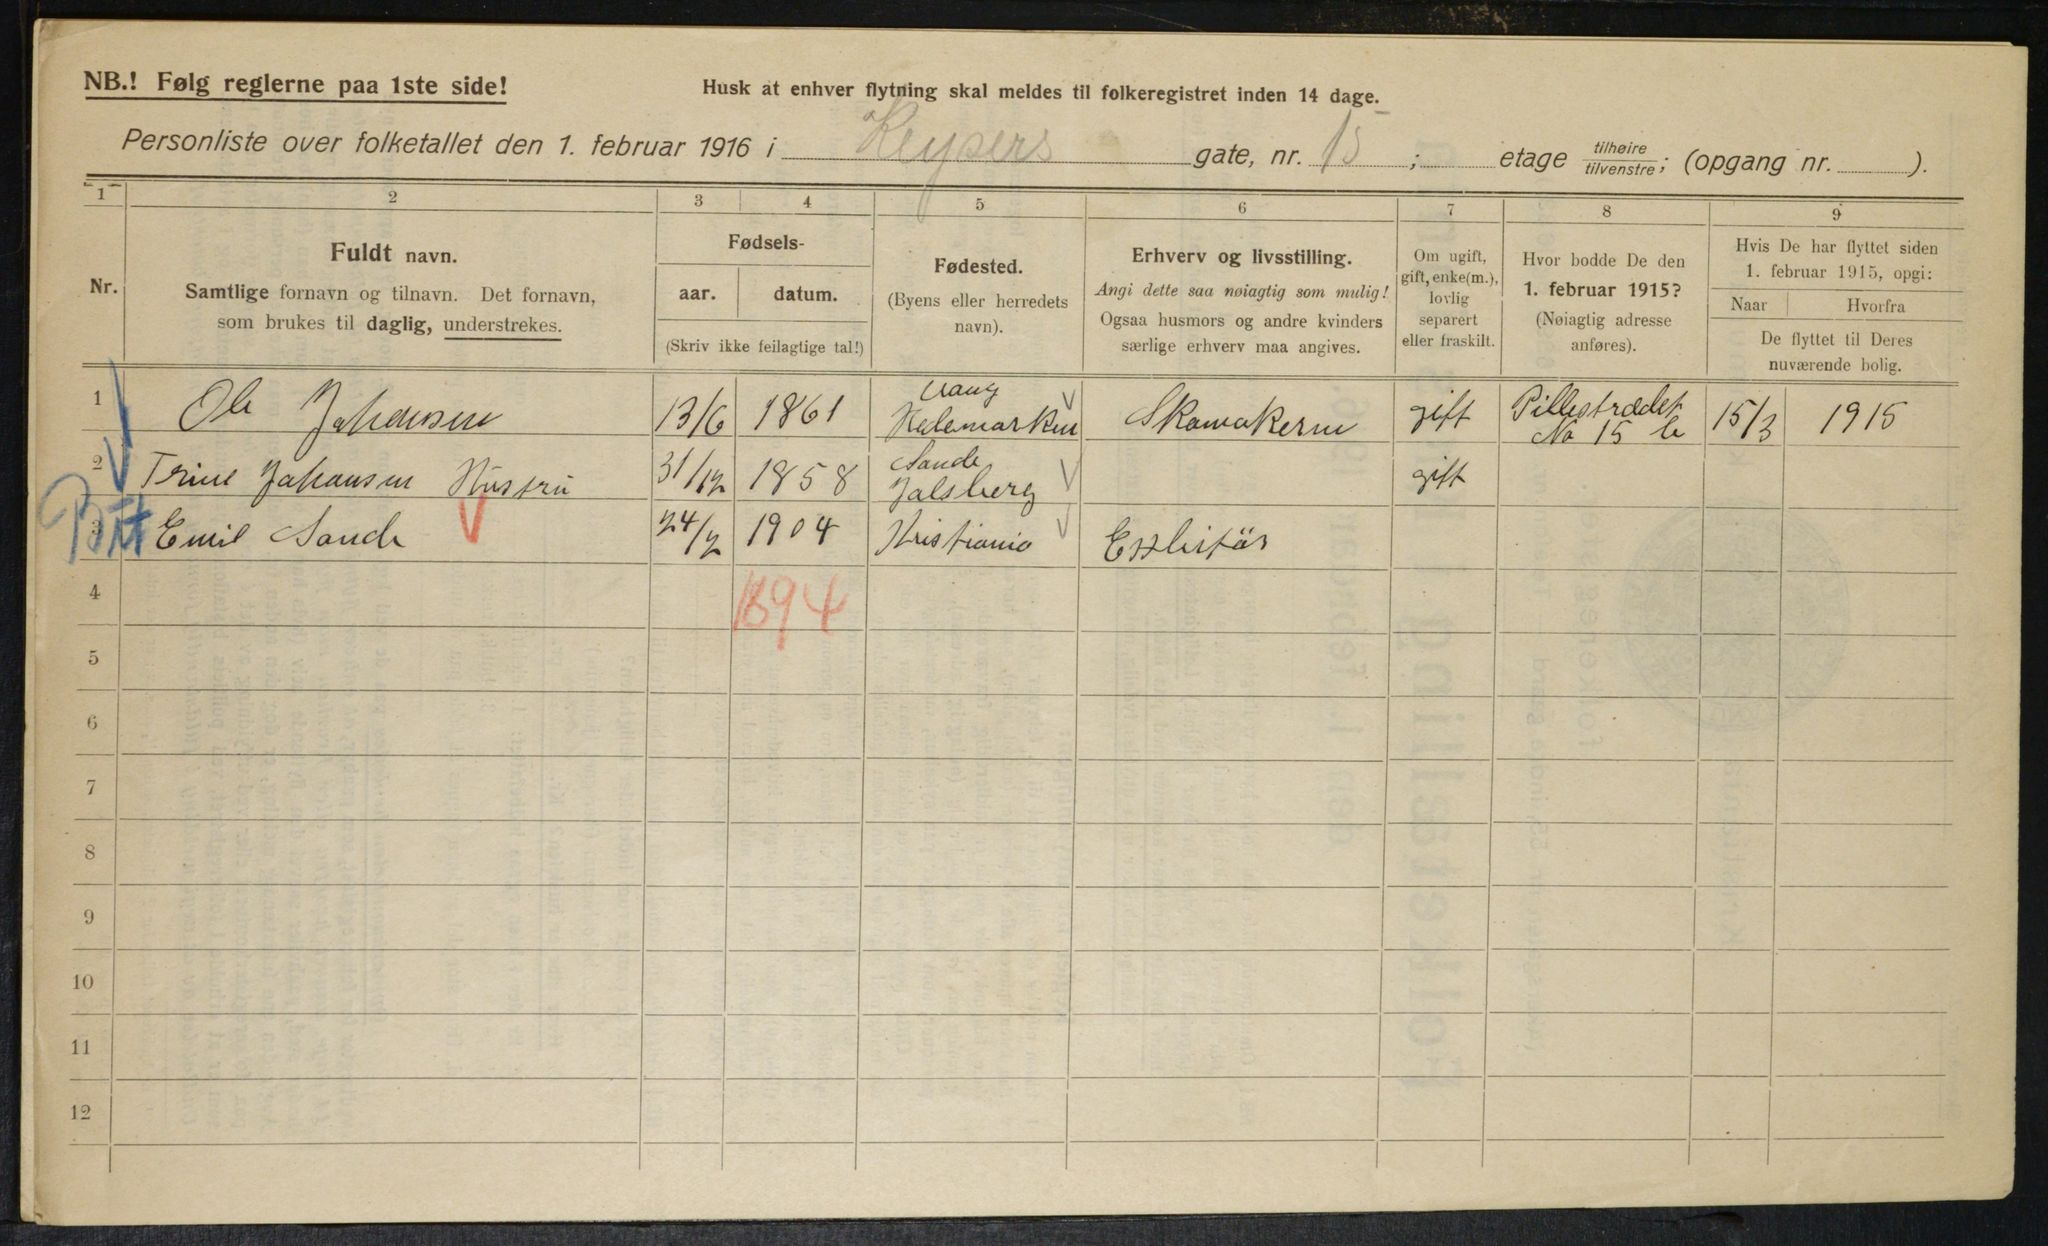 NB.! Følg reglerne paa 1ste side!
Husk at enhver flytning skal meldes til folkeregistret inden 14 dage.
Personliste over folketallet den 1. februar 1916 i Keysers gate, nr. 15; etage tilhøire tilvenstre; (opgang nr. ).
1 2 3 4 5 6 7 8 9
Nr.
Fuldt navn.
Samtlige fornavn og tilnavn. Det fornavn,
som brukes til daglig, understrekes.
Fødsels-
aar. datum.
(Skriv ikke feilagtige tal!)
Fødested.
(Byens eller herredets
navn).
Erhverv og livsstilling.
Angi dette saa nøiagtig som mulig!
Ogsaa husmors og andre kvinders
særlige erhverv maa angives.
Om ugift,
gift, enke(m.),
lovlig
separert
eller fraskilt.
Hvor bodde De den
1. februar 1915?
(Nøiagtig adresse
anføres).
Hvis De har flyttet siden
1. februar 1915, opgi:
Naar Hvorfra
De flyttet til Deres
nuværende bolig.
1 Ole Johansen 13/6 1861 Vang Hedemarken Skomakerm gift Pillestrædet No 15 b 15/3 1915
2 Trine Johansen Hustru 31/12 1858 Sande Jalsberg gift
3 Emil Sande 24/2 1904 Kristiania
4 1894
5
6
7
8
9
10
11
12